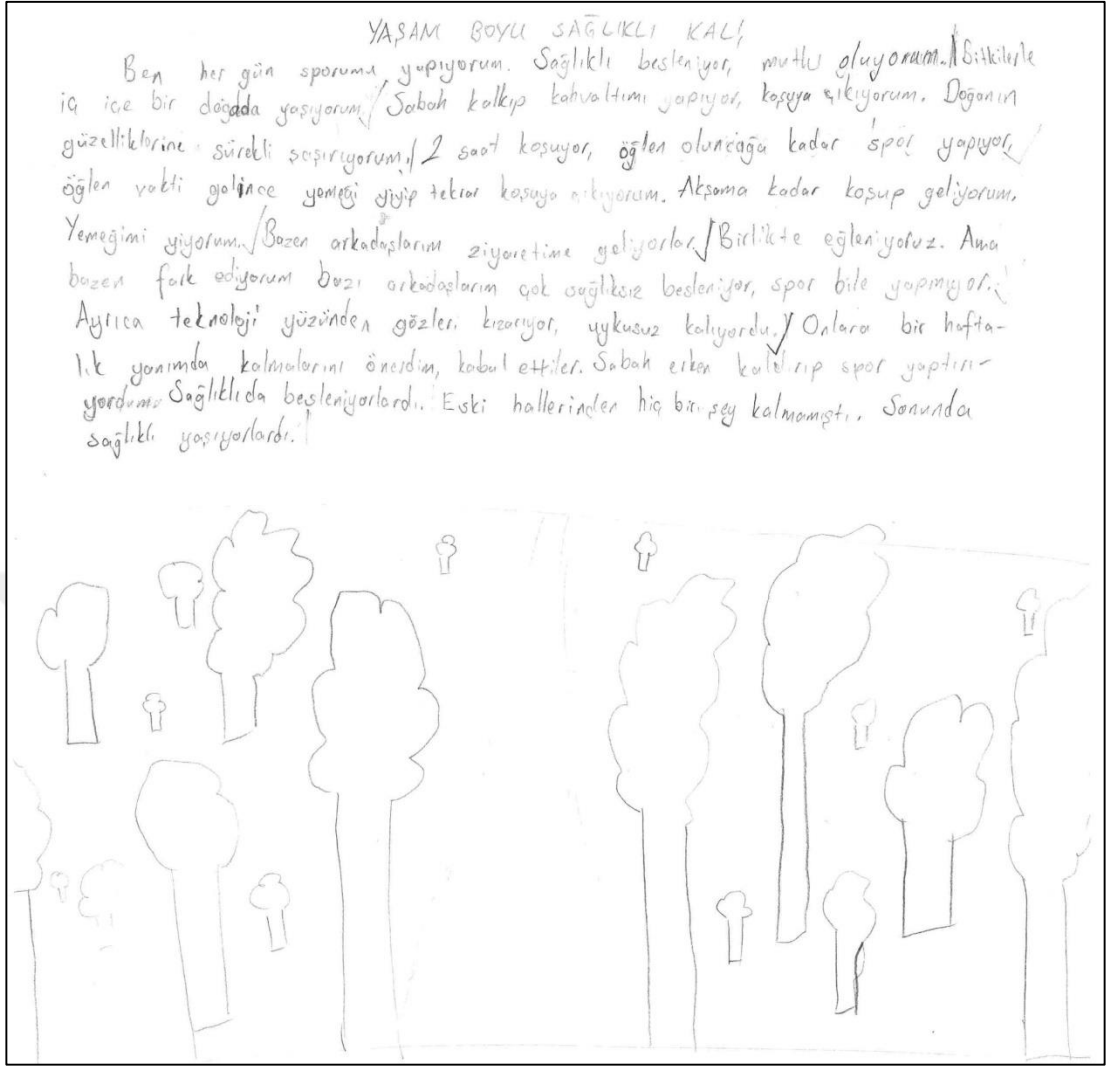 YAŞAM BOYU SAĞLIKLI KAL!
Ben her gün sporumu yapıyorum. Sağlıklı besleniyor, mutlu oluyorum. Bitkilerle
iç içe bir doğada yaşıyorum. Sabah kalkıp kahvaltımı yapıyor, koşuya çıkıyorum. Doğanın
güzelliklerine sürekli şaşırıyorum. 2 saat koşuyor, öğlen oluncağa kadar spor yapıyor,
öğlen vakti gelince yemeği yiyip tekrar koşuya çıkıyorum. Akşama kadar koşup geliyorum.
Yemeğimi yiyorum. Bazen arkadaşlarım ziyaretime geliyorlar. Birlikte eğleniyoruz. Ama
bazen fark ediyorum bazı arkadaşlarım çok sağlıksız besleniyor, spor bile yapmıyor.
Ayrıca teknoloji yüzünden gözleri kızarıyor, uykusuz kalıyordu. Onlara bir hafta-
lık yanımda kalmalarını önerdim, kabul ettiler. Sabah erken kaldırıp spor yaptırı-
yordum. Sağlıklıda besleniyorlardı. Eski hallerinden hiç bir şey kalmamıştı. Sonunda
sağlıklı yaşıyorlardı.